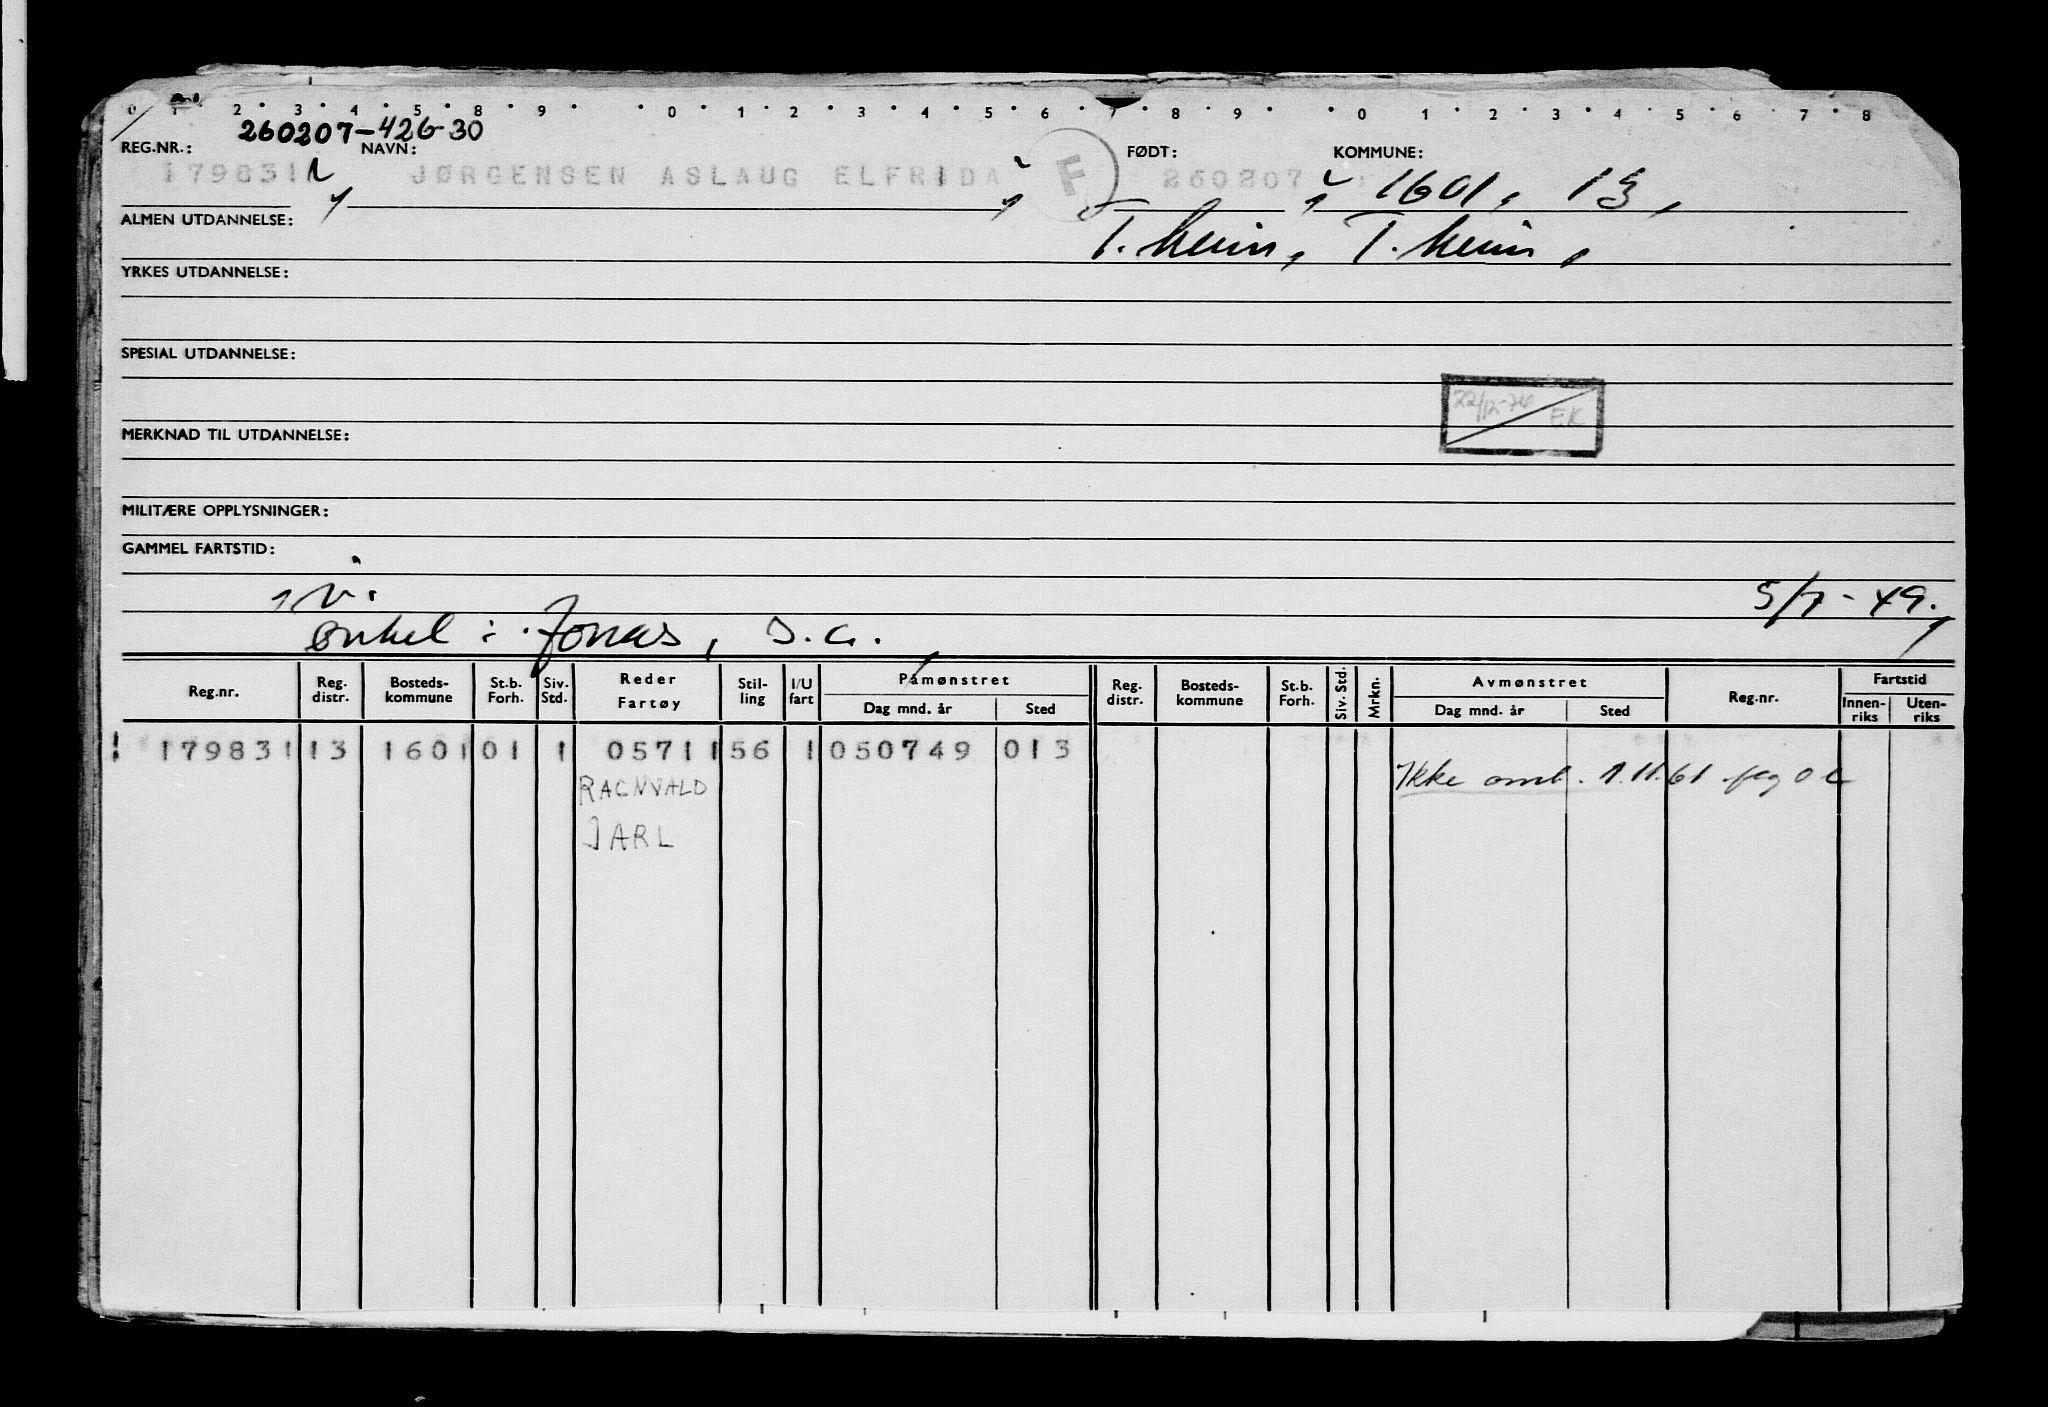 0 1 2 3 4 5 8 9 0 1 2 3 4 5 6 7 8 9 0 1 2 3 4 5 6 7 8
260207-426-30
REG.NR.: NAVN: FØDT: KOMMUNE:
179831 JØRGENSEN ASLAUG ELFRIDA F 260207 1601, 13,
ALMEN UTDANNELSE: T.heim, T.heim,
YRKES UTDANNELSE:
SPESIAL UTDANNELSE:
22/12-76 EK
MERKNAD TIL UTDANNELSE:
MILITÆRE OPPLYSNINGER:
GAMMEL FARTSTID:
5/7-49.
enkel i: Jonas, S.a.,
Reg.nr. Reg. distr. Bosteds-kommune St.b. Forh. Siv. Std. Reder Fartøy Stil-ling I/U fart Påmønstret Dag mnd. år Sted Reg. distr. Bosteds-kommune St.b. Forh. Siv. Std. Mrkn. Avmønstret Dag mnd. år Sted Reg.nr. Fartstid Innen-riks Uten-riks
179831 13 1601 01 1 05711 56 1 050749 013
RAGNVALD Ikke omb. 1.11.61
JARL